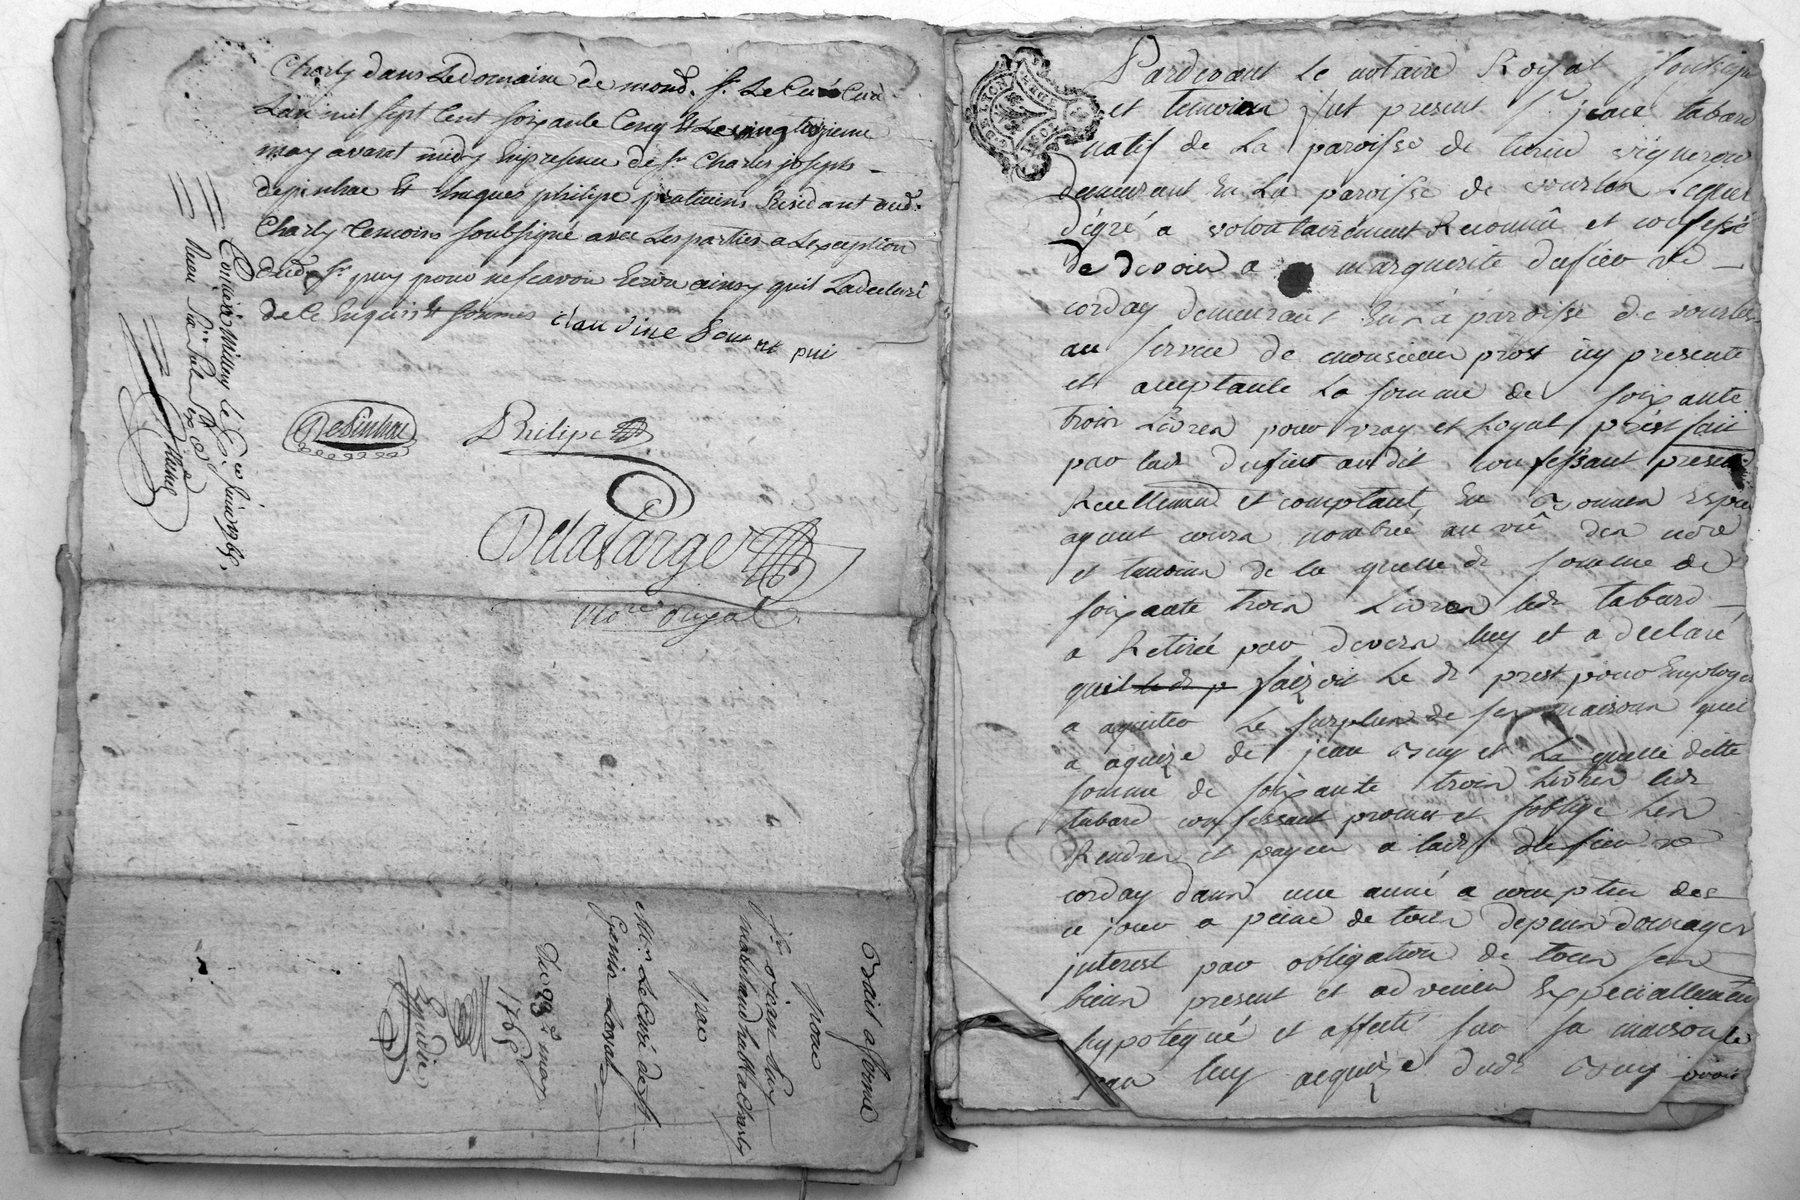 Charly dans Le domaine de mond. Sr. Le Curé
L'an mil sept Cent soixante Cinq Et Le vingt troizieme
may avant midy En presence de Sr. Charles joseph
depinhac Et hugues philipe praticiens Residant aud.
Charly temoins soubsigné avec Les parties a Lexception
dud. Sr. puy pour ne scavoir Ecrire ainsy quil La declaré
de ce Enquis Et sommés claudine pui
Depinhac
Philipe
Delafarge
Nore Royal
Controllé a Millery le Juin 1765
Bail a ferme
pour
Sr. jean puy
habitant Charly
par
Mr. Le Curé de St.
Genis Laval
du 23e may
1765
Expedié
DE LYON
Pardevant Le notaire Royal soussigné
et temoins fut present Sr. jean tabard
natif de La paroisse de vigneron
demeurant En La paroisse de vourles Lequel
de gré a volontairement Reconnû et confessé
de devoir a marguerite dufieu ve
corday demeurant En La paroisse de vourles
au service de monsieur prost icy presente
et acceptante La somme de soixante
trois Livres pour vray et Loyal prest fait
par lad. dufieu audit confessant presen
Reellement et comptant En Bonnes Espec
ayant cours nombrée au vû des nore
et temoins de la quelle de somme de
soixante trois Livres ledt tabard
a Retirée par devers luy et a declaré
quil faizoit Le dt prest pour Employer
a aquiter Le surplus de ses maison quil
a aquize de jean Buy et La quelle dette
somme de soixante trois Livres ledt
tabard confessant promet et soblige Les
Rendre et payer a ladt dufieu ve
corday dans une anné a compter des
ce jour a peine de tous depens domages
interest par obligation de tous ses
biens present et advenir Expeciallement
hypotequé et affecté sur sa maison
par luy acquize dudt Buy